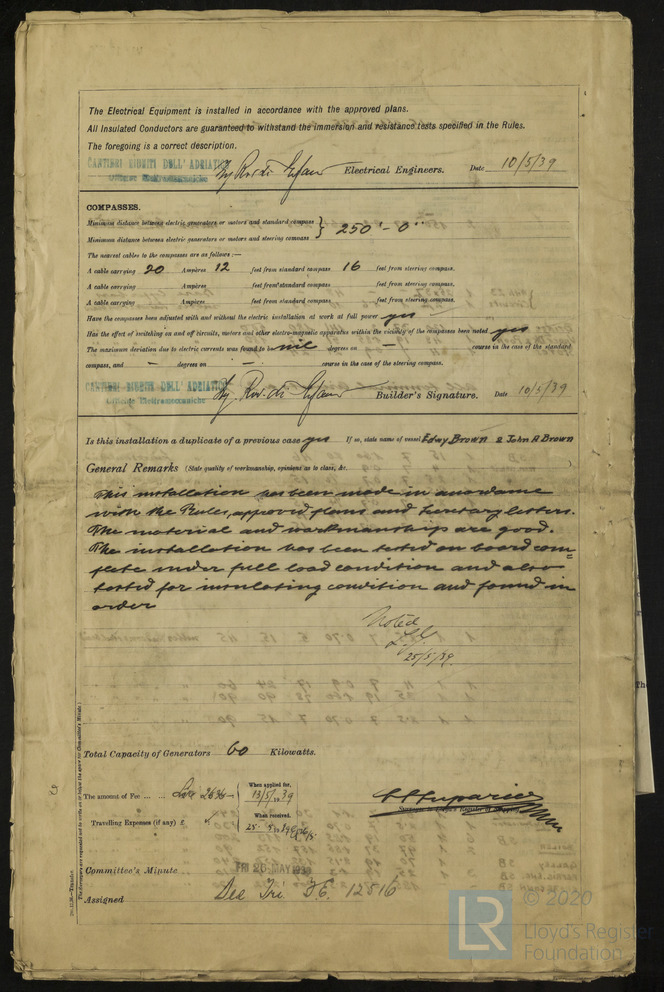 The Electrical Equipment is installed in accordance with the approved plans.
All Insulated Conductors are guaranteed to withstand the immersion and resistance tests specified in the Rules.
The foregoing is a correct description.
CANTIERI RIUNITI DELL' ADRIATICO
Officine Elettromeccaniche
Electrical Engineers. Date 10/5/39
COMPASSES.
Minimum distance between electric generators or motors and standard compass
250'-0"
Minimum distance between electric generators or motors and steering compass
The nearest cables to the compasses are as follows:—
A cable carrying 20 Ampères 12 feet from standard compass 16 feet from steering compass.
A cable carrying Ampères feet from standard compass feet from steering compass.
A cable carrying Ampères feet from standard compass feet from steering compass.
Have the compasses been adjusted with and without the electric installation at work at full power yes
Has the effect of switching on and off circuits, motors and other electro-magnetic apparatus within the vicinity of the compasses been noted yes
The maximum deviation due to electric currents was found to be nil degrees on — course in the case of the standard
compass, and — degrees on — course in the case of the steering compass.
CANTIERI RIUNITI DELL' ADRIATICO
Officine Elettromeccaniche
Builder's Signature. Date 10/5/39
Is this installation a duplicate of a previous case yes If so, state name of vessel Edwy Brown & John A Brown
General Remarks (State quality of workmanship, opinions as to class, &c.
This installation has been made in accordance
with the Rules, approved plans and Secretary letters.
The material and workmanship are good.
The installation has been tested on board com=
plete under full load condition and also
tested for insulating condition and found in
order
Noted
25/5/39.
Total Capacity of Generators 60 Kilowatts.
The amount of Fee ... ... Lire 2636 When applied for, 13/5/1939
Travelling Expenses (if any) £ When received, 25.5.1939
Committee's Minute FRI 26 MAY 1939
Assigned See Tri. F.E. 12816
The Surveyors are requested not to write on or below the space for Committee's Minute.
© 2020
LR
Lloyd's Register
Foundation